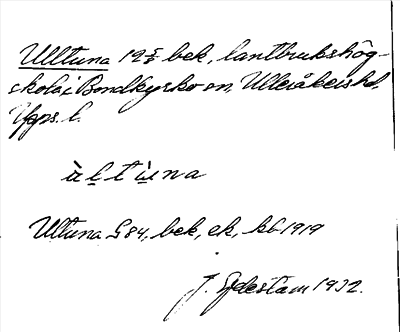 Ulltuna 19 5/8 bek, lantbrukshög-
skola i Bondkyrko sn, Ulleråkers hd.
Upps. l.
ùḷtùna
Ultuna G84, bek, ek, kb 1919
J. Edestam 1932.